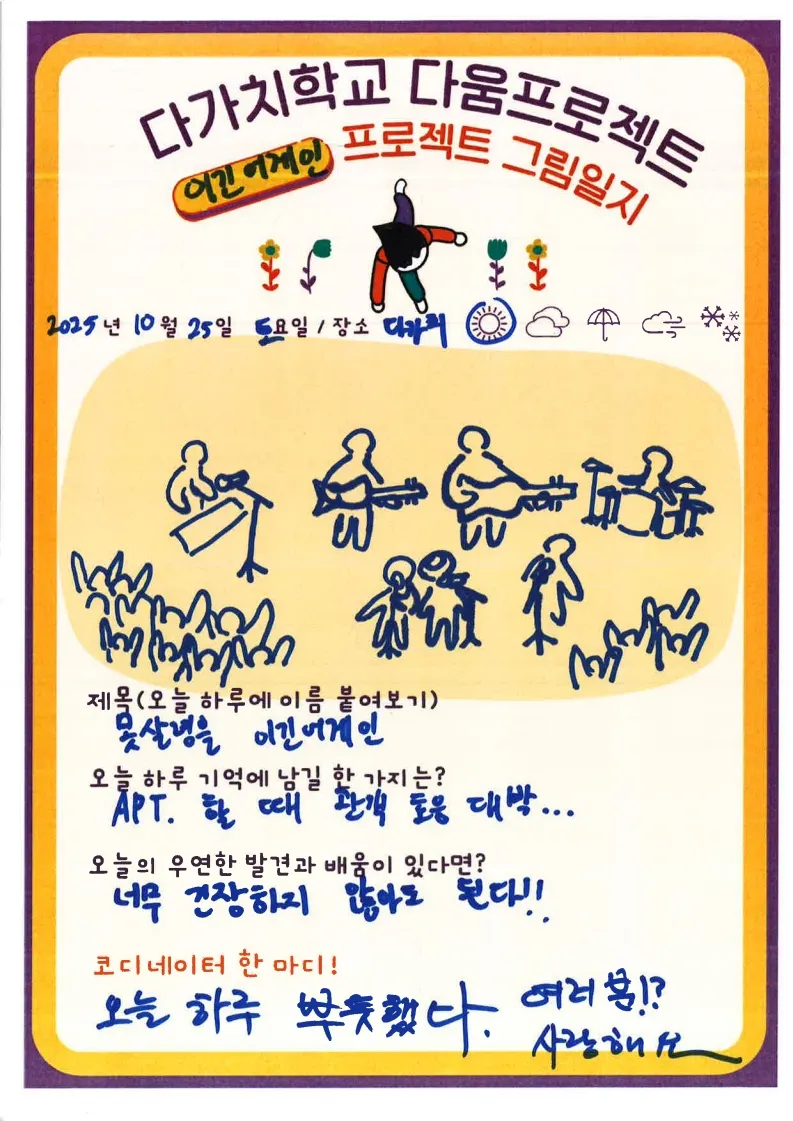 다가치학교 다움프로젝트
이긴 어게인 프로젝트 그림일지
2025년 10월 25일 토요일 / 장소 다가치
제목(오늘 하루에 이름 붙여보기)
이긴어게인
오늘 하루 기억에 남길 한 가지는?
APT. 할 때 관객 호응 대박...
오늘의 우연한 발견과 배움이 있다면?
너무 긴장하지 않아도 된다!!
코디네이터 한 마디!
오늘 하루 뿌듯했다. 여러분!?
사랑해요